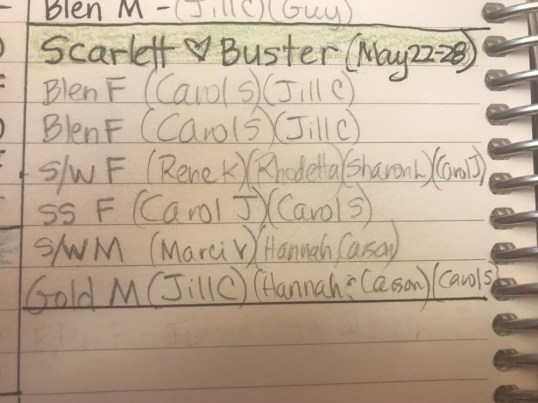 Blen M - (Jill C) (Guy)
Scarlett ♡ Buster (May 22-28)
Blen F (Carol S) (Jill C)
Blen F (Carol S) (Jill C)
S/W F (Rene K) (Rhodetta) (Sharon L) (Carol J)
SS F (Carol J) (Carol S)
S/W M (Marci V) (Hannah Cason)
Gold M (Jill C) (Hannah : Cason) (Carol S)